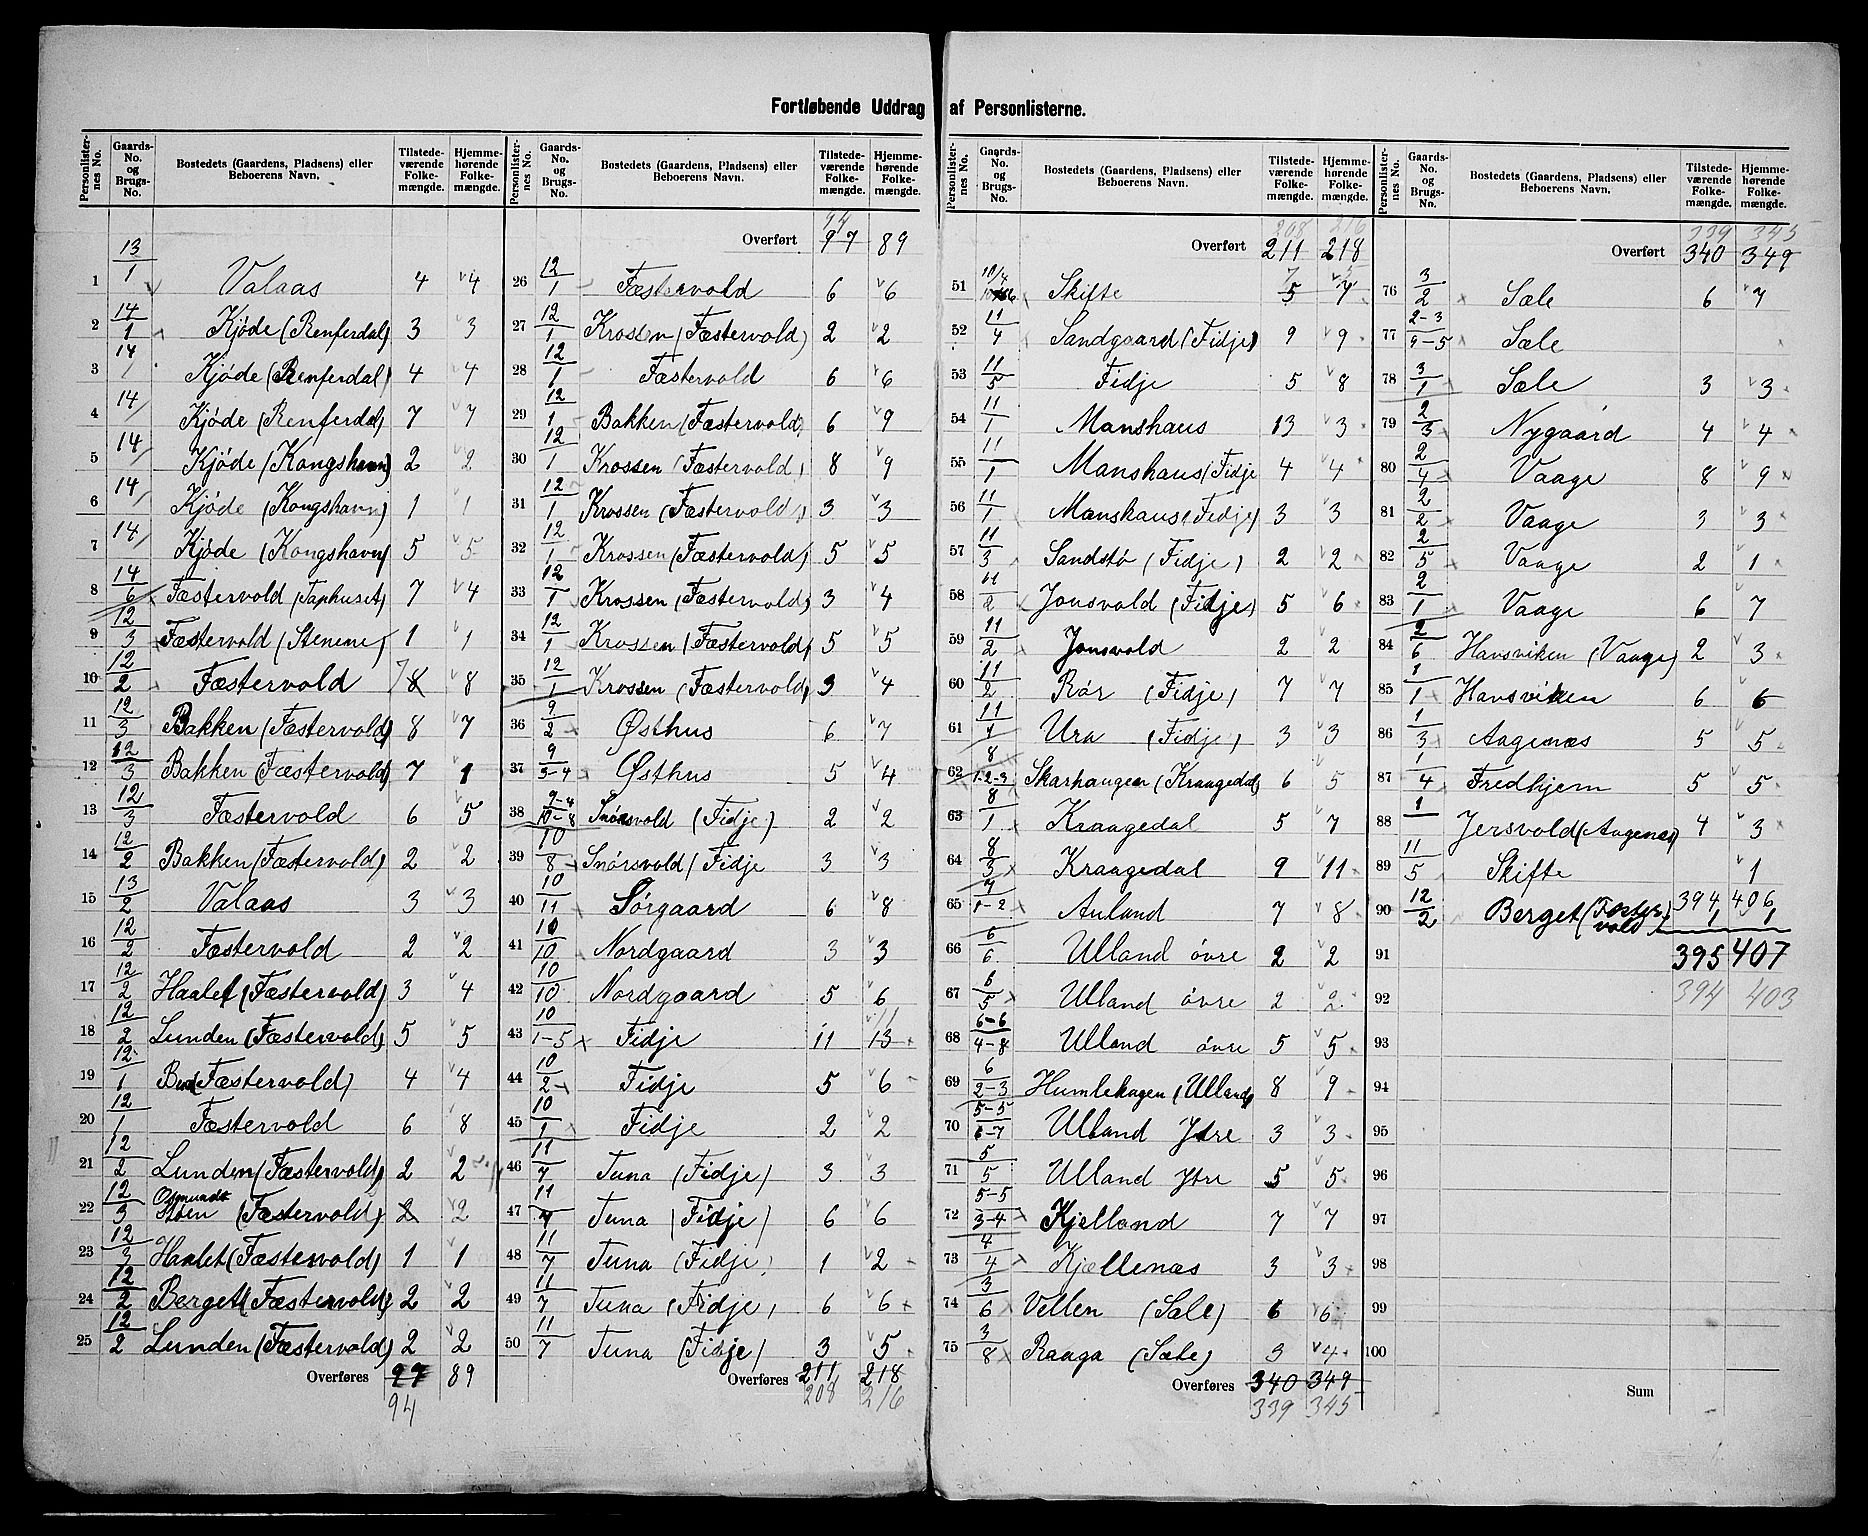 Fortløbende Uddrag af Personlisterne.
Personlister-nes No. | Gaards-No. og Brugs-No. | Bostedets (Gaardens, Pladsens) eller Beboerens Navn. | Tilstede-værende Folke-mængde. | Hjemme-hørende Folke-mængde.
1 13/1 Valaas 4 4
2 14/1 Kjøde (Renferdal) 3 3
3 14/1 Kjøde (Renferdal) 4 4
4 14/1 Kjøde (Renferdal) 7 7
5 14/1 Kjøde (Kongshavn) 2 2
6 14/1 Kjøde (Kongshavn) 1 1
7 14/1 Kjøde (Kongshavn) 5 5
8 14/6 Fæstervold (Taphuset) 7 4
9 12/3 Fæstervold (Stenene) 1 1
10 12/2 Fæstervold 7 8 8
11 12/3 Bakken (Fæstervold) 8 7
12 12/3 Bakken (Fæstervold) 7 1
13 12/3 Fæstervold 6 5
14 12/2 Bakken (Fæstervold) 2 2
15 13/2 Valaas 3 3
16 12/2 Fæstervold 2 2
17 12/2 Haalet (Fæstervold) 3 4
18 12/2 Lunden (Fæstervold) 5 5
19 12/1 (Fæstervold) 4 4
20 12/1 Fæstervold 6 8
21 12/2 Lunden (Fæstervold) 2 2
22 12/3 Osmundstøen (Fæstervold) 2 2
23 12/3 Haalet (Fæstervold) 1 1
24 12/2 Berget (Fæstervold) 2 2
25 12/2 Lunden (Fæstervold) 2 2
Overføres 97 89
94
Personlister-nes No. | Gaards-No. og Brugs-No. | Bostedets (Gaardens, Pladsens) eller Beboerens Navn. | Tilstede-værende Folke-mængde. | Hjemme-hørende Folke-mængde.
94
Overført 97 89
26 12/1 Fæstervold 6 6
27 12/1 Krossen (Fæstervold) 2 2
28 12/1 Fæstervold 6 6
29 12/1 Bakken (Fæstervold) 6 9
30 12/1 Krossen (Fæstervold) 8 9
31 12/1 Krossen (Fæstervold) 3 3
32 12/1 Krossen (Fæstervold) 5 5
33 12/1 Krossen (Fæstervold) 3 4
34 12/1 Krossen (Fæstervold) 5 5
35 12/1 Krossen (Fæstervold) 3 4
36 9/2 Østhus 6 7
37 9/3-4 Østhus 5 4
38 9-4/10-8 Snørsvold (Fidje) 2 2
39 10/8 Snørsvold (Fidje 3 3
40 10/11 Sørgaard 6 8
41 10/10 Nordgaard 3 3
42 10/10 Nordgaard 5 6
43 10/1-5 Fidje 11 13
44 10/2 Fidje 5 6
45 10/1 Fidje 2 2
46 11/7 Tuna (Fidje) 3 3
47 11/7 Tuna (Fidje) 6 6
48 11/7 Tuna (Fidje) 1 2
49 11/7 Tuna (Fidje) 6 6
50 11/7 Tuna (Fidje) 3 5
Overføres 211 218
208 216
Personlister-nes No. | Gaards-No. og Brugs-No. | Bostedets (Gaardens, Pladsens) eller Beboerens Navn. | Tilstede-værende Folke-mængde. | Hjemme-hørende Folke-mængde.
208 216
Overført 211 218
51 Skifte 5 7
52 11/4 Sandgaard (Fidje) 9 9
53 11/5 Fidje 5 8
54 11/1 Manshaus 13 3
55 11/1 Manshaus (Fidje 4 4
56 11/1 Manshaus (Fidje) 3 3
57 11/3 Sandstø (Fidje) 2 2
58 11/2 Jonsvold (Fidje) 5 6
59 11/2 Jonsvold 2 2
60 11/2 Rør (Fidje) 7 7
61 11/1 Ura (Fidje) 3 3
62 8/1-2-3 Skarhaugen (Kraagedal) 6 5
63 8/1 Kraagedal 5 7
64 8/3 Kraagedal 9 11
65 7/1-2 Auland 7 8
66 6/6 Ulland øvre 2 2
67 6/5 Ulland øvre 2 2
68 6-6/4-8 Ulland øvre 5 5
69 6/2-3 Humlehagen (Ulland) 8 9
70 5-5/6-7 Ulland Ytre 3 3
71 5/5 Ulland Ytre 5 5
72 5-5/3-4 Kjelland 7 7
73 4/4 Kjællenæs 3 3
74 3/6 Vellen (Sale) 6 6
75 3/8 Raaga (Sæle) 3 4
Overføres 340 349
339 345
Personlister-nes No. | Gaards-No. og Brugs-No. | Bostedets (Gaardens, Pladsens) eller Beboerens Navn. | Tilstede-værende Folke-mængde. | Hjemme-hørende Folke-mængde.
339 345
Overført 340 349
76 3/2 Sæle 6 7
77 2-3/9-5 Sæle
78 3/1 Sæle 3 3
79 2/3 Nygaard 4 4
80 2/4 Vaage 8 9
81 2/2 Vaage 3 3
82 2/5 Vaage 2 1
83 2/1 Vaage 6 7
84 2/6 Hansviken (Vaage) 2 3
85 1/1 Hansviken 6 6
86 1/3 Aagenæs 5 5
87 1/4 Fredhjem 5 5
88 1 Jersvold (Aagenæs) 4 3
89 11/5 Skifte 1
394 406
90 12/2 Berget (Fæstervold) 1 1
91 395 407
92 394 403
93
94
95
96
97
98
99
100
Sum